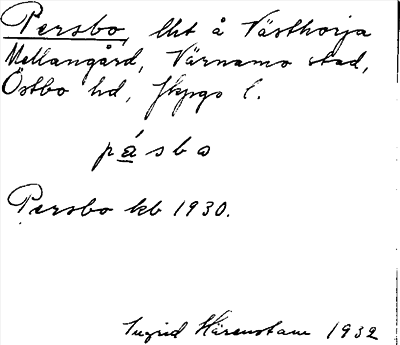 Persbo, lht å Västhorja
Mellangård, Värnamo stad,
Östbo hd, Jkpgs l.
pásbo
Persbo kb 1930.
Ingrid Härenstam 1932